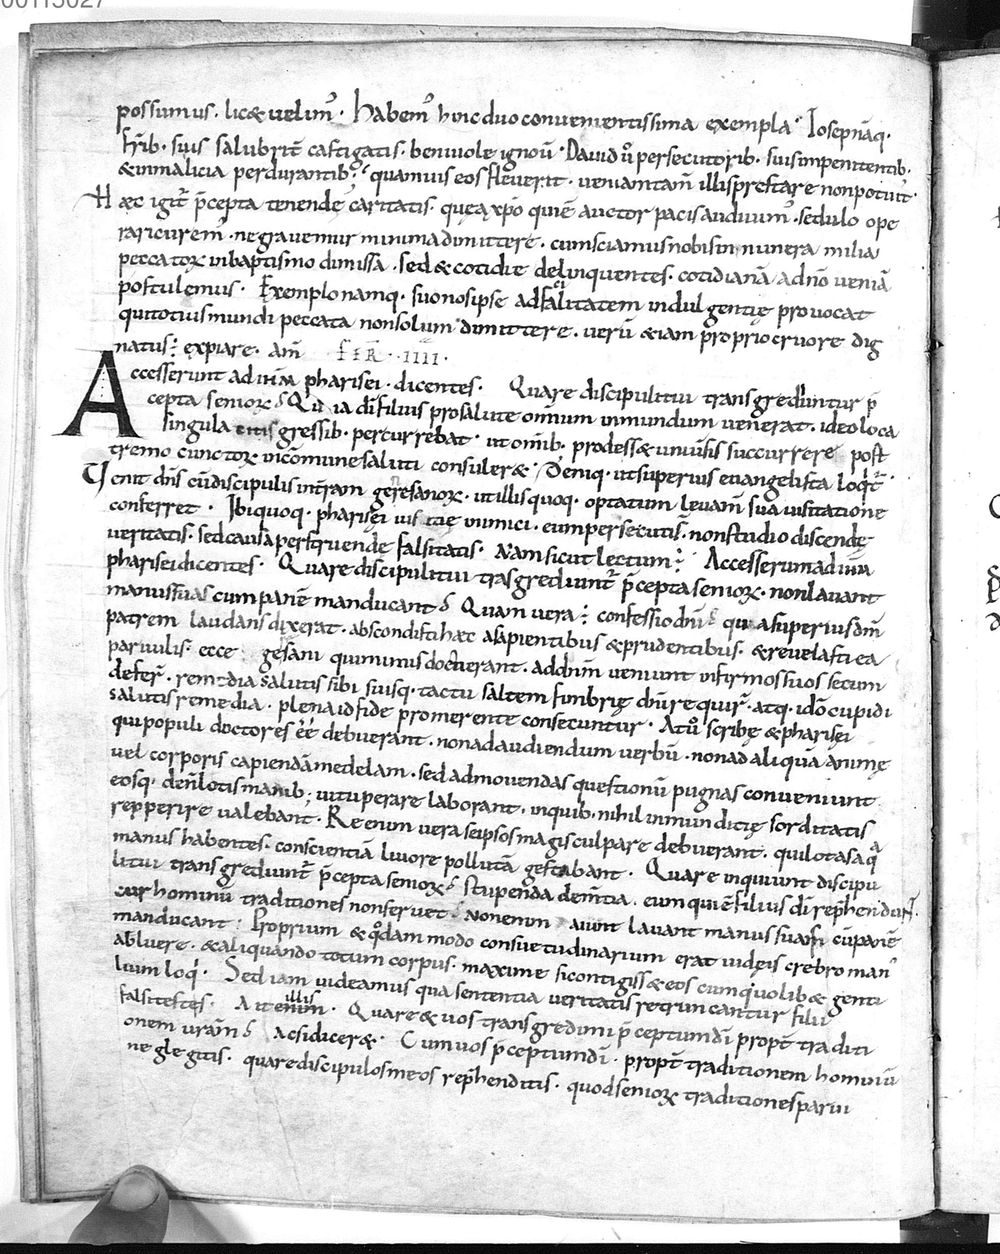 00113027
possumus · lic& uelim᷒ · Habem᷒ huic duo conuenientissima exempla · Iosep nāq·
frīb· suis salubrit̄ castigatis · beniuole ignou̅ · Dauid u̅ persecutorib· suis inpenitentib·
& in malicia perdurantib; quamuis eos fleuerit · ueniam tam̄ illis prestare non potuit ·
Hęc igit̄ p̄cepta tenendę caritatis · quę a xp̄o qui ē auctor pacis audiuim᷒ · sedulo ope
rari curem᷒ · ne grauemur minima dimittere · cum sciamus nobis in numera milia
peccatoꝝ in baptismo dimissa · sed & cotidie delinquentes · cotidianā a dn̄o ueniā
postulemus · Exemplo namq· suo nos ipse ad talitatem indulgentię prouocat
qui totius mundi peccata non solum dimittere · uerū & iam proprio cruore dig
natus : expiare · am̄ FER · IIII ·
Accesserunt ad ihm̄ pharisei · dicentes · Quare discipuli tui transgrediuntur p̄
cepta senioꝝ Quia dī filius pro salute omnium in mundum uenerat · ideo loca
singula gressib· percurrebat · ut omīb· prodess& uniuersis succurrere post
tremo cunctoꝝ in cōmune saluti consuler& Deniq· ut superius euangelista loq̄t̄
Venit dn̄s cū discipulis in t̄ram geresanoꝝ · ut illis quoq· optatum leuam̄ sua uisitatione
conferret · Ibi quoq· pharisei iustitię inimici · eum persecuti s̄ · non studio discendę
ueritatis · sed causa persequendę falsitatis · Nam sicut lectum : Accesserun ad ihm̄
pharisei dicentes · Quare discipuli tui trasgrediunt̄ p̄cepta senioꝝ · non lauant
manus suas cum panē manducant Quam uera : confessio dn̄i qua superius dm̄
patrem laudans dixerat · abscondisti hæc a sapientibus & prudentibus · & reuelasti ea
paruulis · ecce gesani qui minus docti erant · ad dnm̄ ueniunt infirmos suos secum
defer̄ · remedia salutis sibi suisq· tactu saltem fimbrię dn̄i requir̄ · atq· idō cupidi
salutis remedia · plena id fide promerente consecuntur · At u̅ scribę & pharisei
qui populi doctores ēē debuerant · non ad audiendum uerbū · non ad aliquā animę
uel corporis capiendā medelam · sed ad mouendas questionū pugnas conueniunt
eosq· de n̄ lotis manib; uituperare laborant · in quib· nihil inmundicię sorditatis
repperire ualebant · Re enim uera se ipsos magis culpare debuerant · qui lotas aq̄
manus habentes · conscientiā liuore pollutā gestabant · Quare inquiunt discipu
li tui transgrediunt̄ p̄cepta senioꝝ Stupenda dem̄tia · eum qui ē filius dī rep̄hendunt ·
cur hominū traditiones non seruet Non enim aiunt lauant manus suas cū panē
manducant : Proprium & qd̄am modo consuetudinarium erat iudęis crebro man᷒
abluere · & aliquando totum corpus · maxime si contigiss& eos cum quolib& genti
lium loqi · Sed iam uideamus qua sententia ueritatis retruncantur filii
falsitestes · Ait enim illis · Quare & uos transgredimi p̄ceptum dī propt̄ traditi
onem ur̄am Ac si dicer& · Cum uos p̄ceptum dī · propt̄ traditionem hominū
neglegitis · quare discipulos meos rep̄henditis · quod senioꝝ traditiones parui